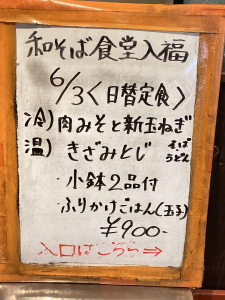 和そば食堂入福
6/3<日替定食>
冷)肉みそと新玉ねぎ
温)きざみとじ そば うどん
・小鉢2品付
・ふりかけごはん(玉子)
¥900-
入口はこちら→